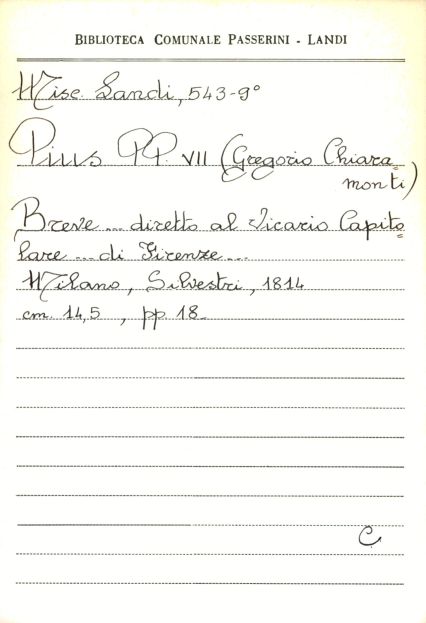 BIBLIOTECA COMUNALE PASSERINI - LANDI
Misc. Landi, 543-9°
Pius PP VII (Gregorio Chiara=
monti)
Breve ... diretto al Vicario Capito=
lare ... di Firenze ...
Milano, Silvestri, 1814
cm. 14,5 , pp. 18-
C